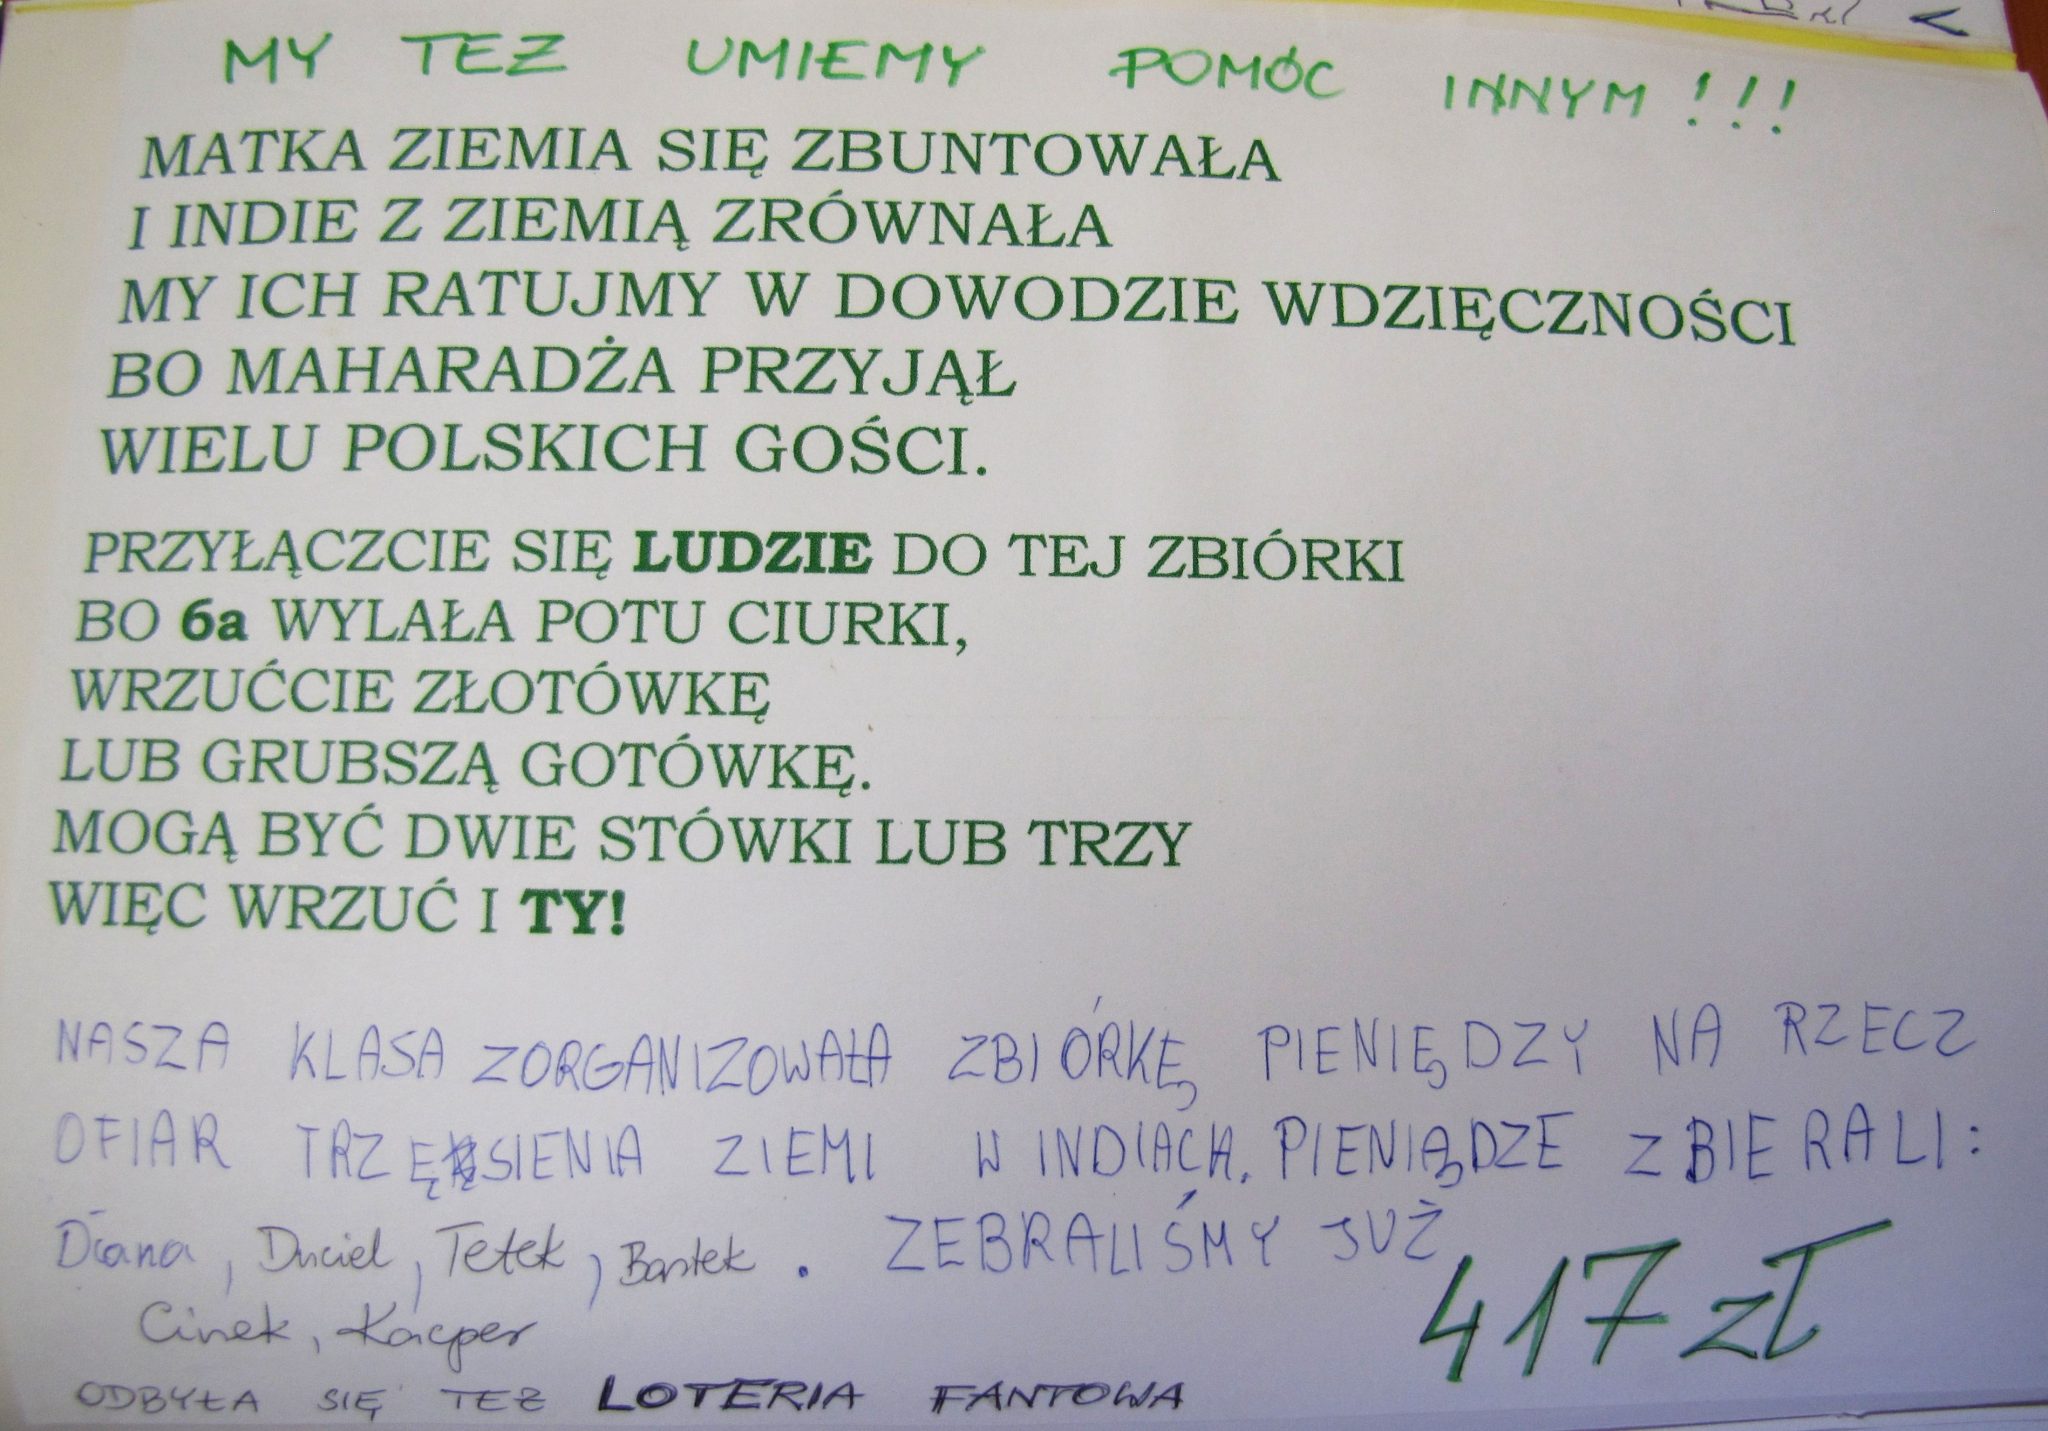 MY TEŻ UMIEMY POMÓC INNYM!!!
MATKA ZIEMIA SIĘ ZBUNTOWAŁA
I INDIE Z ZIEMIĄ ZRÓWNAŁA
MY ICH RATUJMY W DOWODZIE WDZIĘCZNOŚCI
BO MAHARADŻA PRZYJĄŁ
WIELU POLSKICH GOŚCI.
PRZYŁĄCZCIE SIĘ LUDZIE DO TEJ ZBIÓRKI
BO 6a WYLAŁA POTU CIURKI,
WRZUĆCIE ZŁOTÓWKĘ
LUB GRUBSZĄ GOTÓWKĘ.
MOGĄ BYĆ DWIE STÓWKI LUB TRZY
WIĘC WRZUĆ I TY!
NASZA KLASA ZORGANIZOWAŁA ZBIÓRKĘ PIENIĘDZY NA RZECZ
OFIAR TRZĘSIENIA ZIEMI W INDIACH. PIENIĄDZE ZBIERALI:
Diana, Duciel, Tetek, Bartek. ZEBRALIŚMY JUŻ
417 zł
Cinek, Kacper
ODBYŁA SIĘ TEŻ LOTERIA FANTOWA